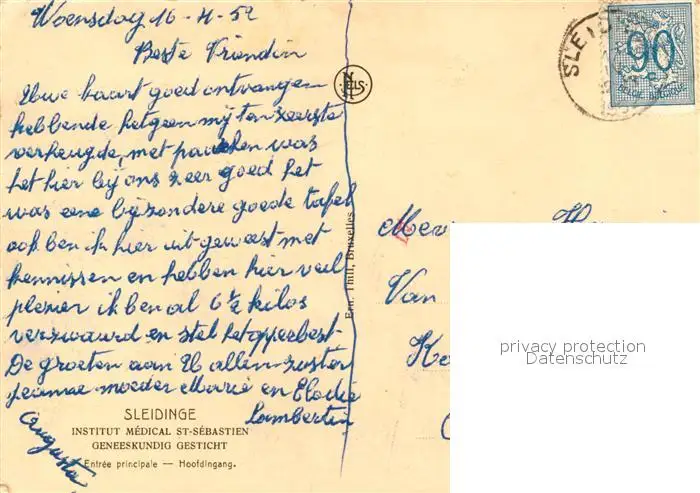 Woensdag 16-4-52
Beste Vriendin
Uwe kaart goed ontvangen
hebbende hetgeen mij ten zeerste
verheugde, met paschen was
het hier bij ons zeer goed het
was eene bijzondere goede tafel
ook ben ik hier uit geweest met
kennissen en hebben hier veil
plezier ik ben al 6½ kilos
verzwaard en stel het oppeebest
De groeten aan U allen zuster
moeder Marie en Elodie
Lambertin
Augusta
SLEIDINGE
INSTITUT MÉDICAL ST-SÉBASTIEN
GENEESKUNDIG GESTICHT
Entrée principale — Hoofdingang.
NELS
Ern. Thill, Bruxelles
SLEI
90
c
BELGIE BELGIQUE
Mevr
Van
privacy protection
Datenschutz